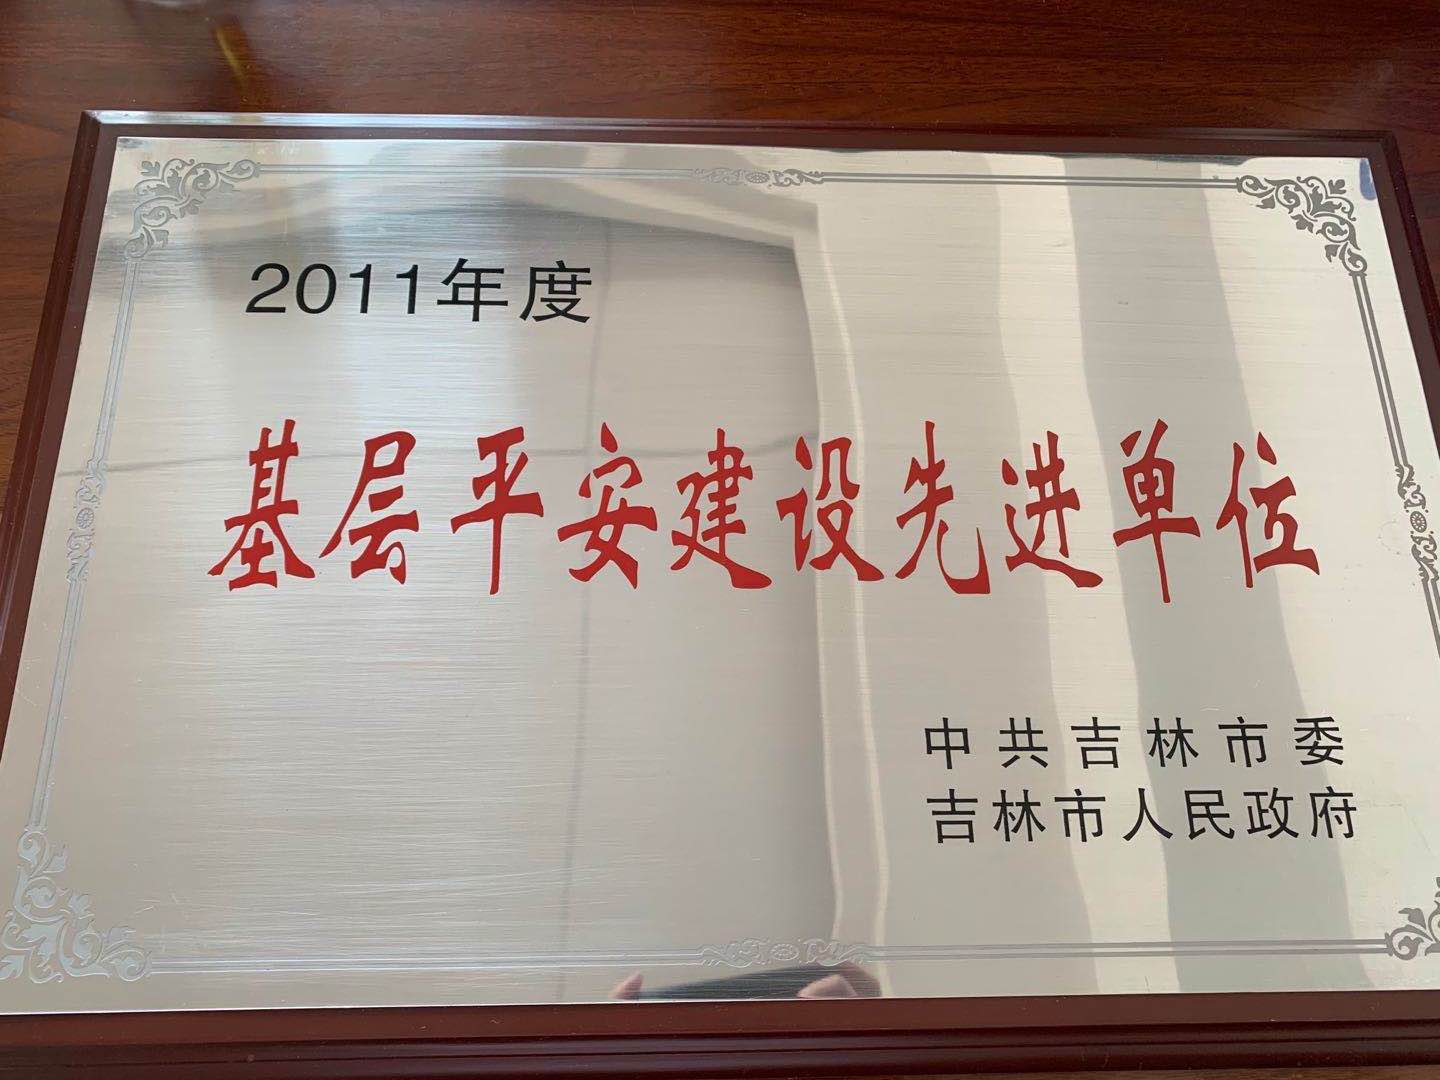 2011年度
基层平安建设先进单位
中共吉林市委
吉林市人民政府